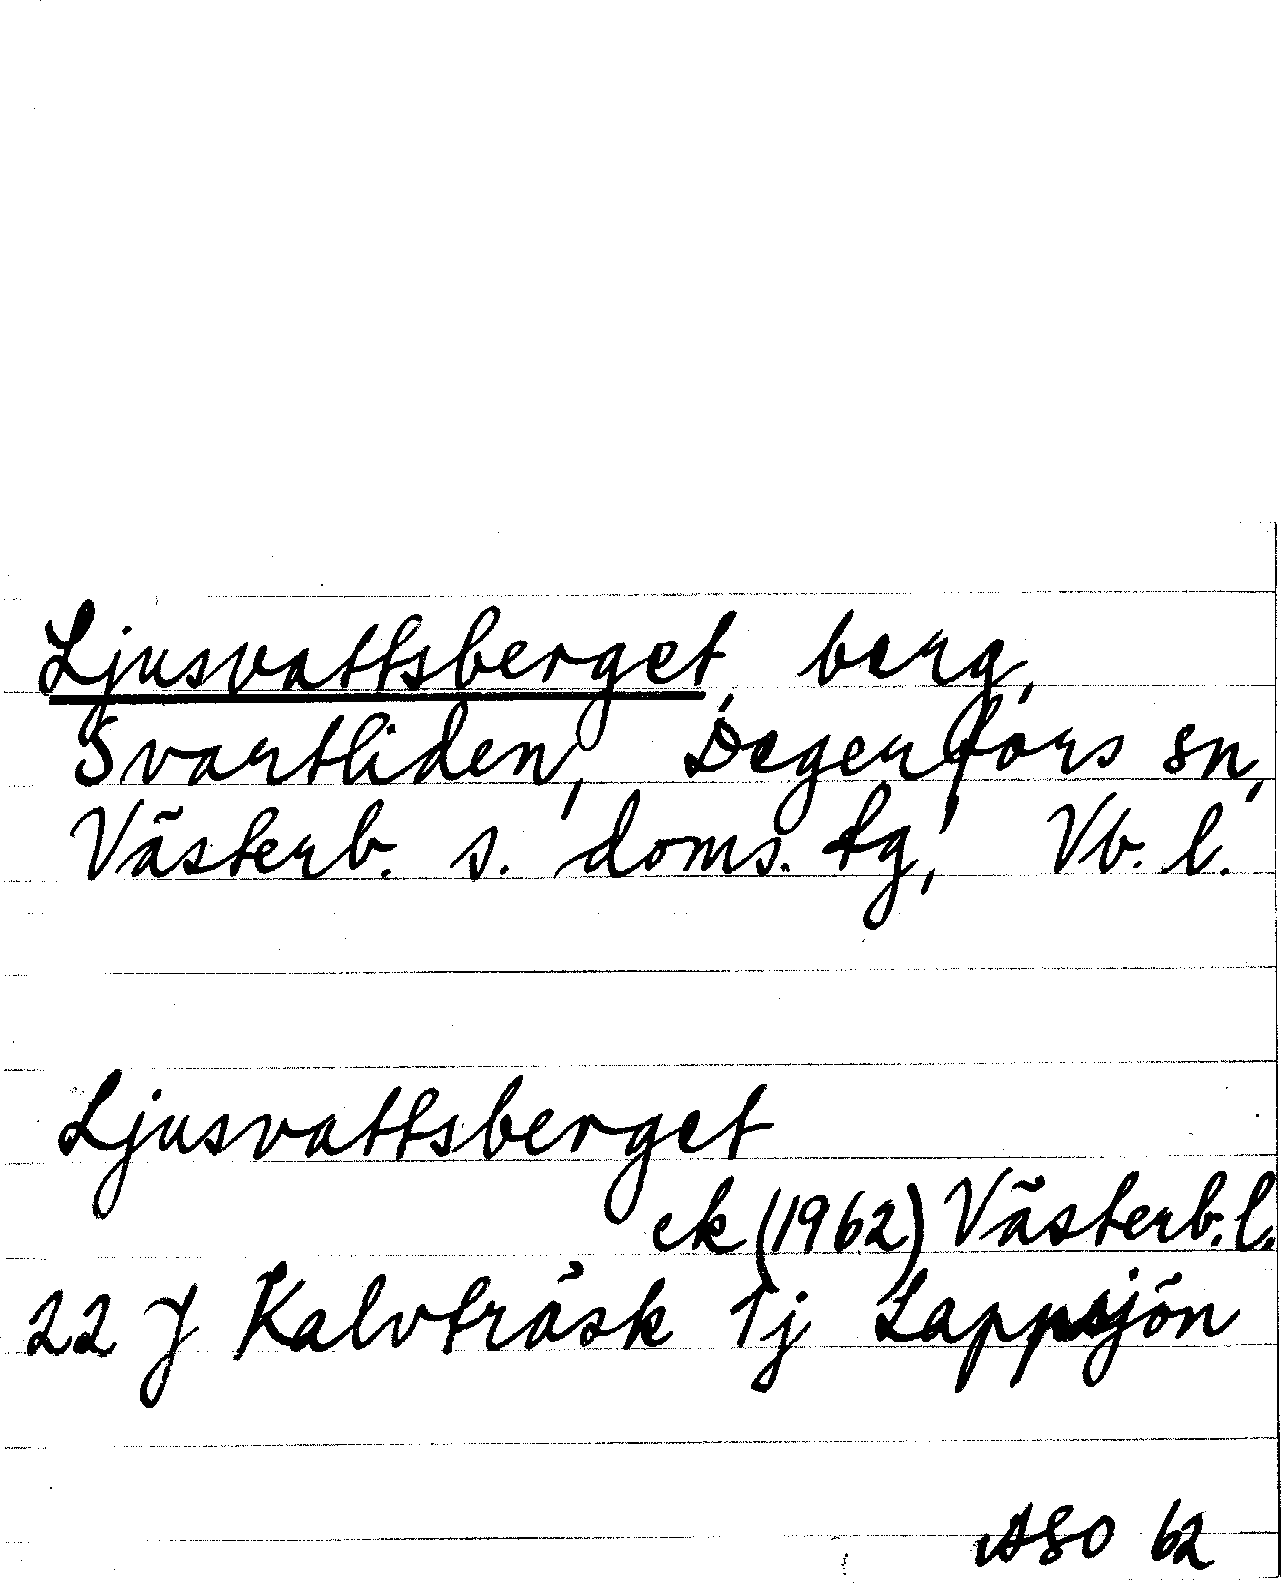 Ljusvattsberget, berg,
Svartliden, Degerfors sn,
Västerb. s. doms. tg, Vb. l.
Ljusvattsberget
ek (1962) Västerb. l.
22 J Kalvträsk 1j Lappsjön
ASO 62